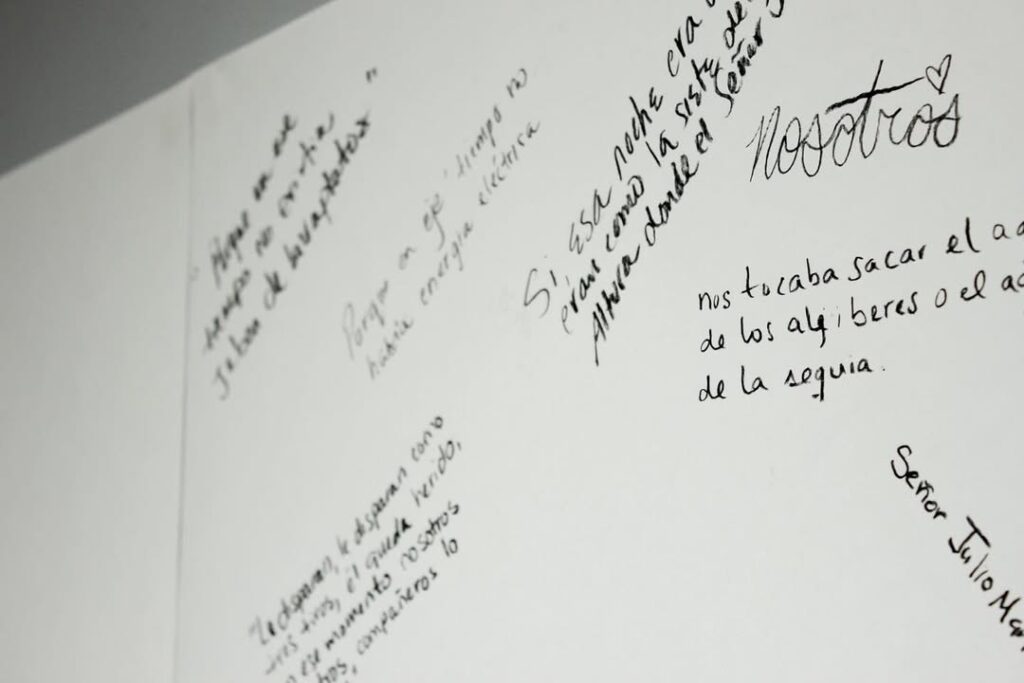 "Porque en ese
tiempo no existia
jabon de lavaplatos"
Porque en eje tiempo no
había energia eléctrica
Sí, Esa noche era
erais como la siete de
Altura donde el Señor J
nosotros
nos tocaba sacar el a
de los algiberes o el
de la sequia.
Le disparan, le disparan como
tres tiros, él queda herido,
n ese momento nosotros
compañeros lo
Señor Julio Ma